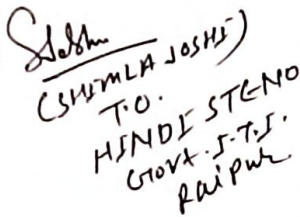 (SHIMLA JOSHI)
T.O.
HINDI STENO
Govt. I.T.I.
Raipur